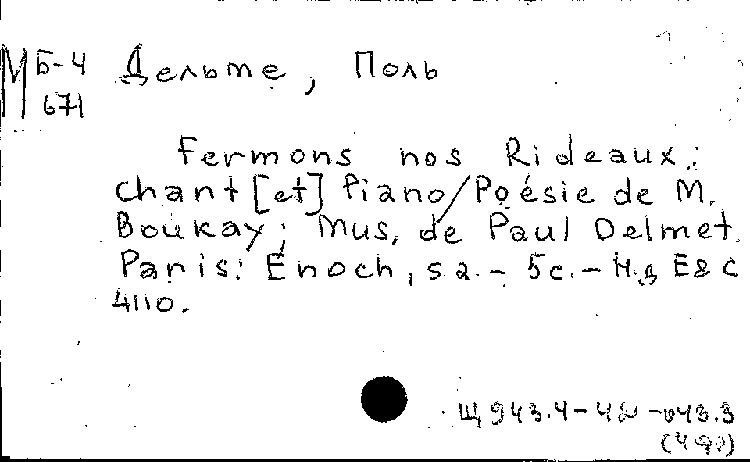 М Б-4 Дельме, Поль
671
Fermons nos Rideaux:
chant [et] Piano/Poésie de M.
Boukay; Mus. de Paul Delmet.
Paris: Énoch, s.a. - 5c. - Н.д E&C
4110.
Щ 943.4-4